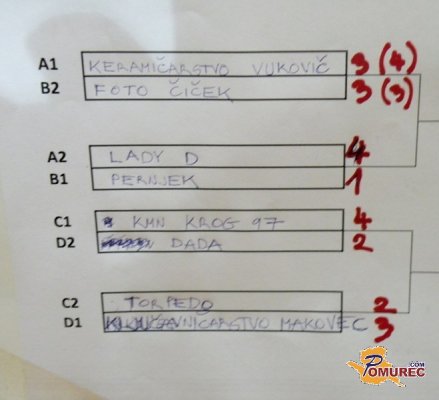 A1 KERAMIČARSTVO VUKOVIČ 3 (4)
B2 FOTO ČIČEK 3 (3)
A2 LADY D 4
B1 PERNJEK 1
C1 KMN KROG 97 4
D2 DADA 2
C2 TORPEDO 2
D1 KLJUČAVNIČARSTVO MAKOVEC 3
POMUREC.COM